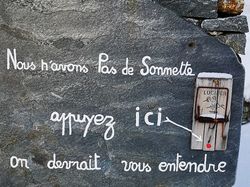 Nous n'avons Pas de Sonnette
appuyez ici
on devrait vous entendre